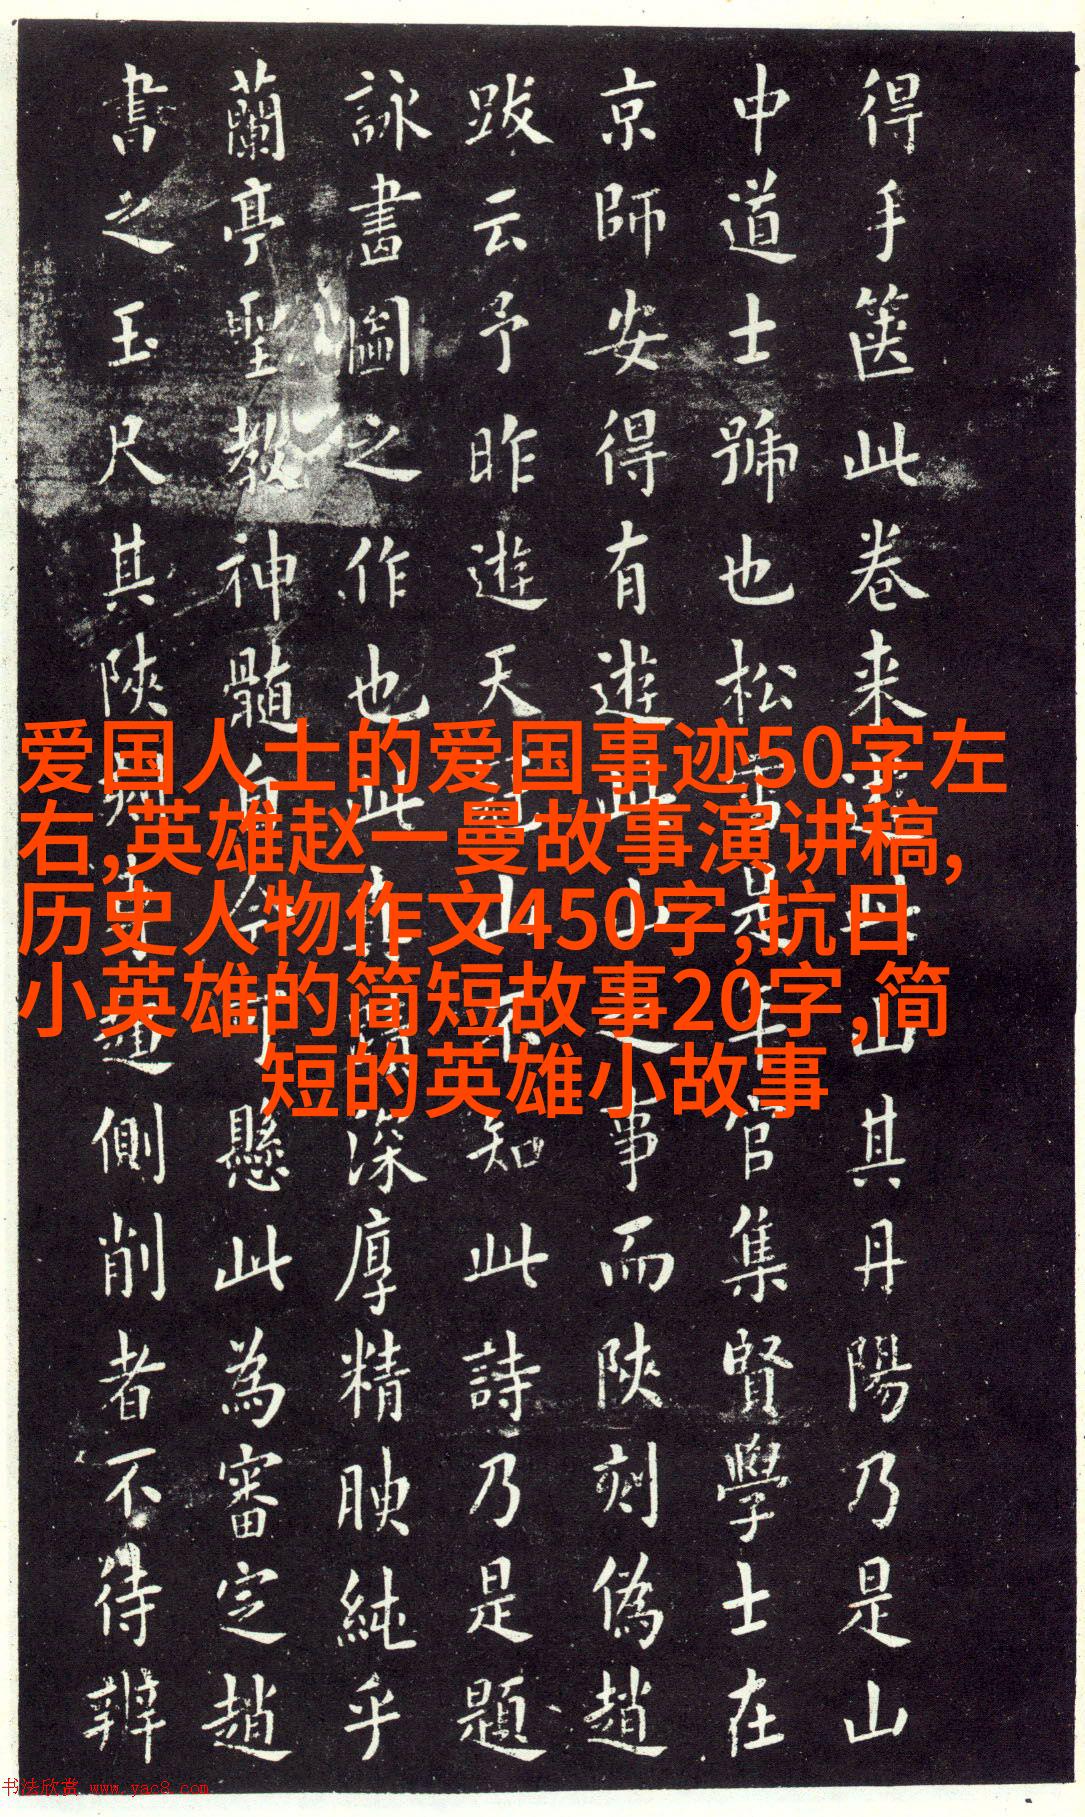 得手篋此卷来丹山其丹陽乃是山
中道士號也松雪是年官集賢學士在
京師安得有遊此山之事而陝刻偽趙
跋云予昨遊天山不知此詩乃是題
詠畫圖之作也此深厚精腴純乎
蘭亭聖教神髓自今可懸此為審定趙
書之玉尺其陝刻側削者不待辨
爱国人士的爱国事迹50字左
右,英雄赵一曼故事演讲稿,
历史人物作文450字,抗日
小英雄的简短故事20字,简
短的英雄小故事
书法欣赏 www.yac8.com